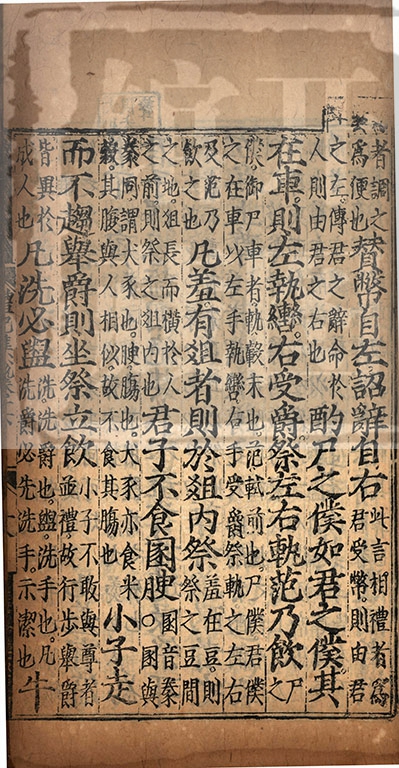 者調之爲便也贊幣自左詔辭自右此言相禮者爲君受幣則由君
之左傳君之辭命於人則由君之右也酌尸之僕如君之僕其
在車則左執轡右受爵祭左右軌范乃飲尸之
僕御尸車者軌轂末也范軾前也尸僕君僕之在車以左手執轡右手受爵祭軌之左右
及范乃飲之也凡羞有俎者則於俎内祭羞在豆則祭之豆間
之地俎長而橫於人之前則祭之俎内也君子不食圂腴圂音豢○圂與
豢同謂犬豕也腴腸也犬豕亦食米穀其腹與人相似故不食其腸也小子走
而不趨舉爵則坐祭立飲小子不敢與尊者並禮故行步舉爵
皆異於成人也凡洗必盥洗洗爵也盥洗手也凡洗爵必先洗手示潔也牛